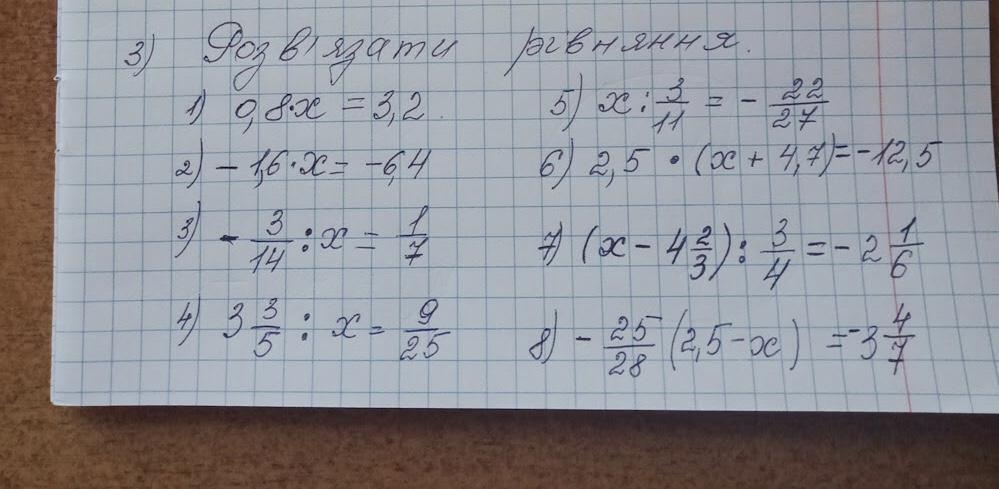 3) Розв'язати рівняння.
1) 0,8·x = 3,2.
2) - 1,6·x = -6,4
3) - 3/14 : x = 1/7
4) 3 3/5 : x = 9/25
5) x : 3/11 = - 22/27
6) 2,5 · (x + 4,7) = -12,5
7) (x - 4 2/3) : 3/4 = - 2 1/6
8) - 25/28 (2,5 - x) = -3 4/7